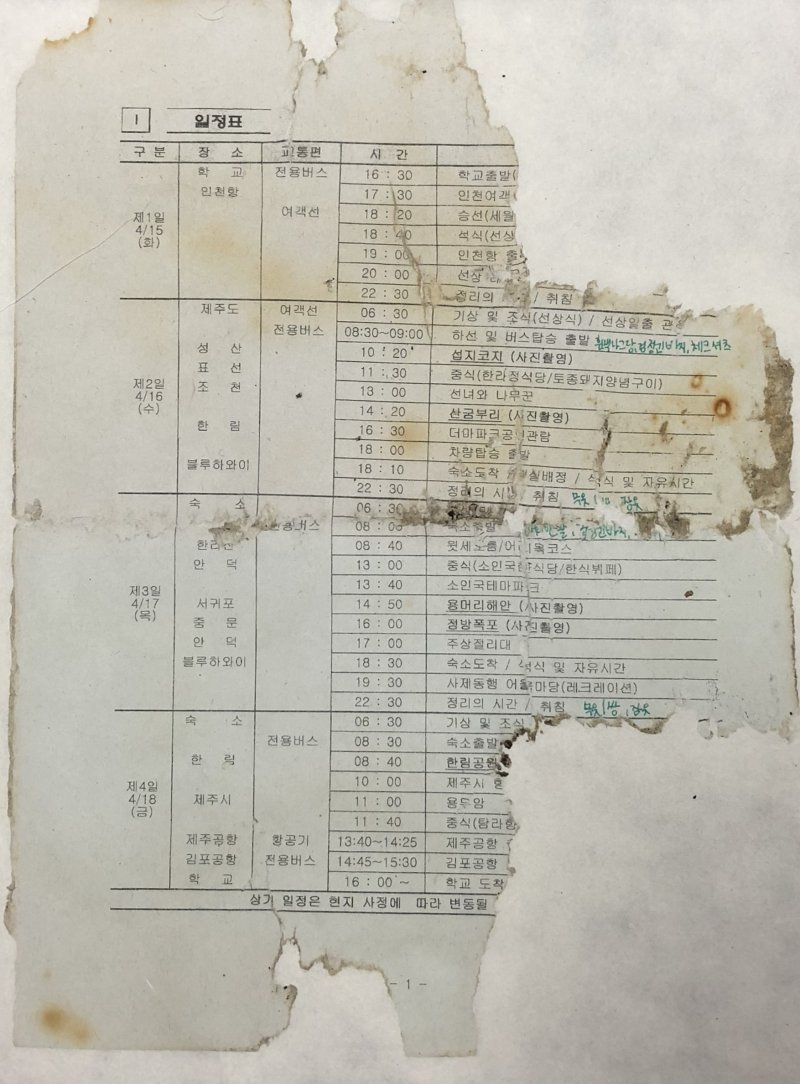 I 일정표
구 분 장 소 교통편 시 간
학 교 전용버스 16 : 30 학교출발(
인천항 17 : 30 인천여객
제1일 4/15 (화) 여객선 18 : 20 승선(세월
18 : 40 석식(선상
19 : 00 인천항 출
20 : 00 선상
22 : 30 정리의 / 취침
제주도 여객선 06 : 30 기상 및 조식(선상식) / 선상일출 관
전용버스 08:30~09:00 하선 및 버스탑승 출발
성 산 10 : 20 섭지코지 (사진촬영)
표 선 11 : 30 중식(한라정식당/토종돼지양념구이)
제2일 4/16 (수) 조 천 13 : 00 선녀와 나무꾼
14 : 20 산굼부리 (사진촬영)
한 림 16 : 30 더마파크공연관람
18 : 00 차량탑승 출발
블루하와이 18 : 10 숙소도착 실배정 / 석식 및 자유시간
22 : 30 정리의 시 취침
숙 소 06 : 30
전용버스 08 : 00 숙소출발
한라산 08 : 40 윗세오름/어 목코스
안 덕 13 : 00 중식(소인국 식당/한식뷔페)
제3일 4/17 (목) 13 : 40 소인국테마파크
서귀포 14 : 50 용머리해안 (사진촬영)
중 문 16 : 00 정방폭포 (사진촬영)
안 덕 17 : 00 주상절리대
블루하와이 18 : 30 숙소도착 / 석식 및 자유시간
19 : 30 사제동행 어울마당(레크레이션)
22 : 30 정리의 시간 / 취침
숙 소 06 : 30 기상 및 조식
전용버스 08 : 30 숙소출발
한 림 08 : 40 한림공원
10 : 00 제주시
제4일 4/18 (금) 제주시 11 : 00 용두암
11 : 40 중식(탐라
제주공항 항공기 13:40~14:25 제주공항
김포공항 전용버스 14:45~15:30 김포공항
학 교 16 : 00 ~ 학교 도착
상기 일정은 현지 사정에 따라 변동될
- 1 -